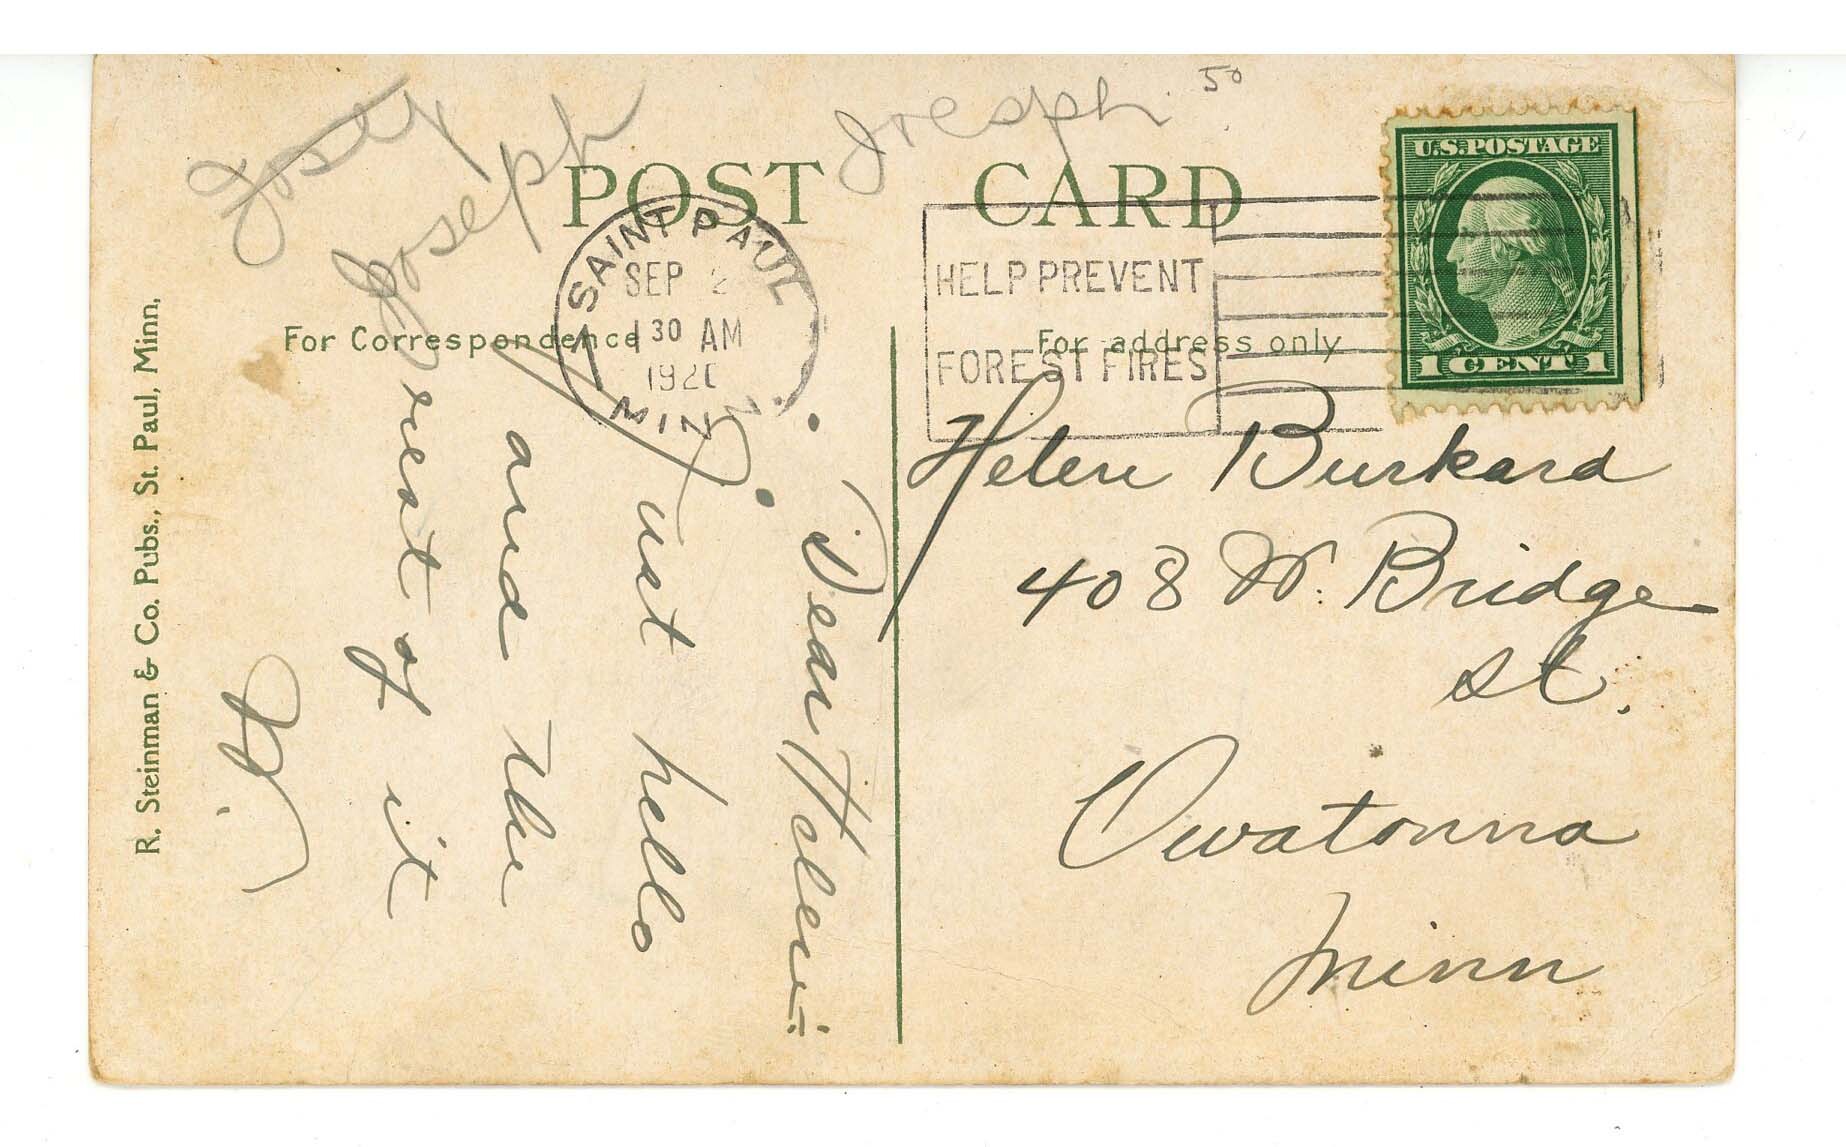 Josep
Joseph
Joesph
50
POST CARD
SAINT PAUL
SEP 2
1 30 AM
1920
MINN.
HELP PREVENT
FOREST FIRES
U.S. POSTAGE
1 CENT 1
For Correspondence
For address only
Dear Helen:-
Just hello
and the
rest of it
Helen Burkard
408 W. Bridge
St.
Owatonna
Minn
R. Steinman & Co. Pubs., St. Paul, Minn,